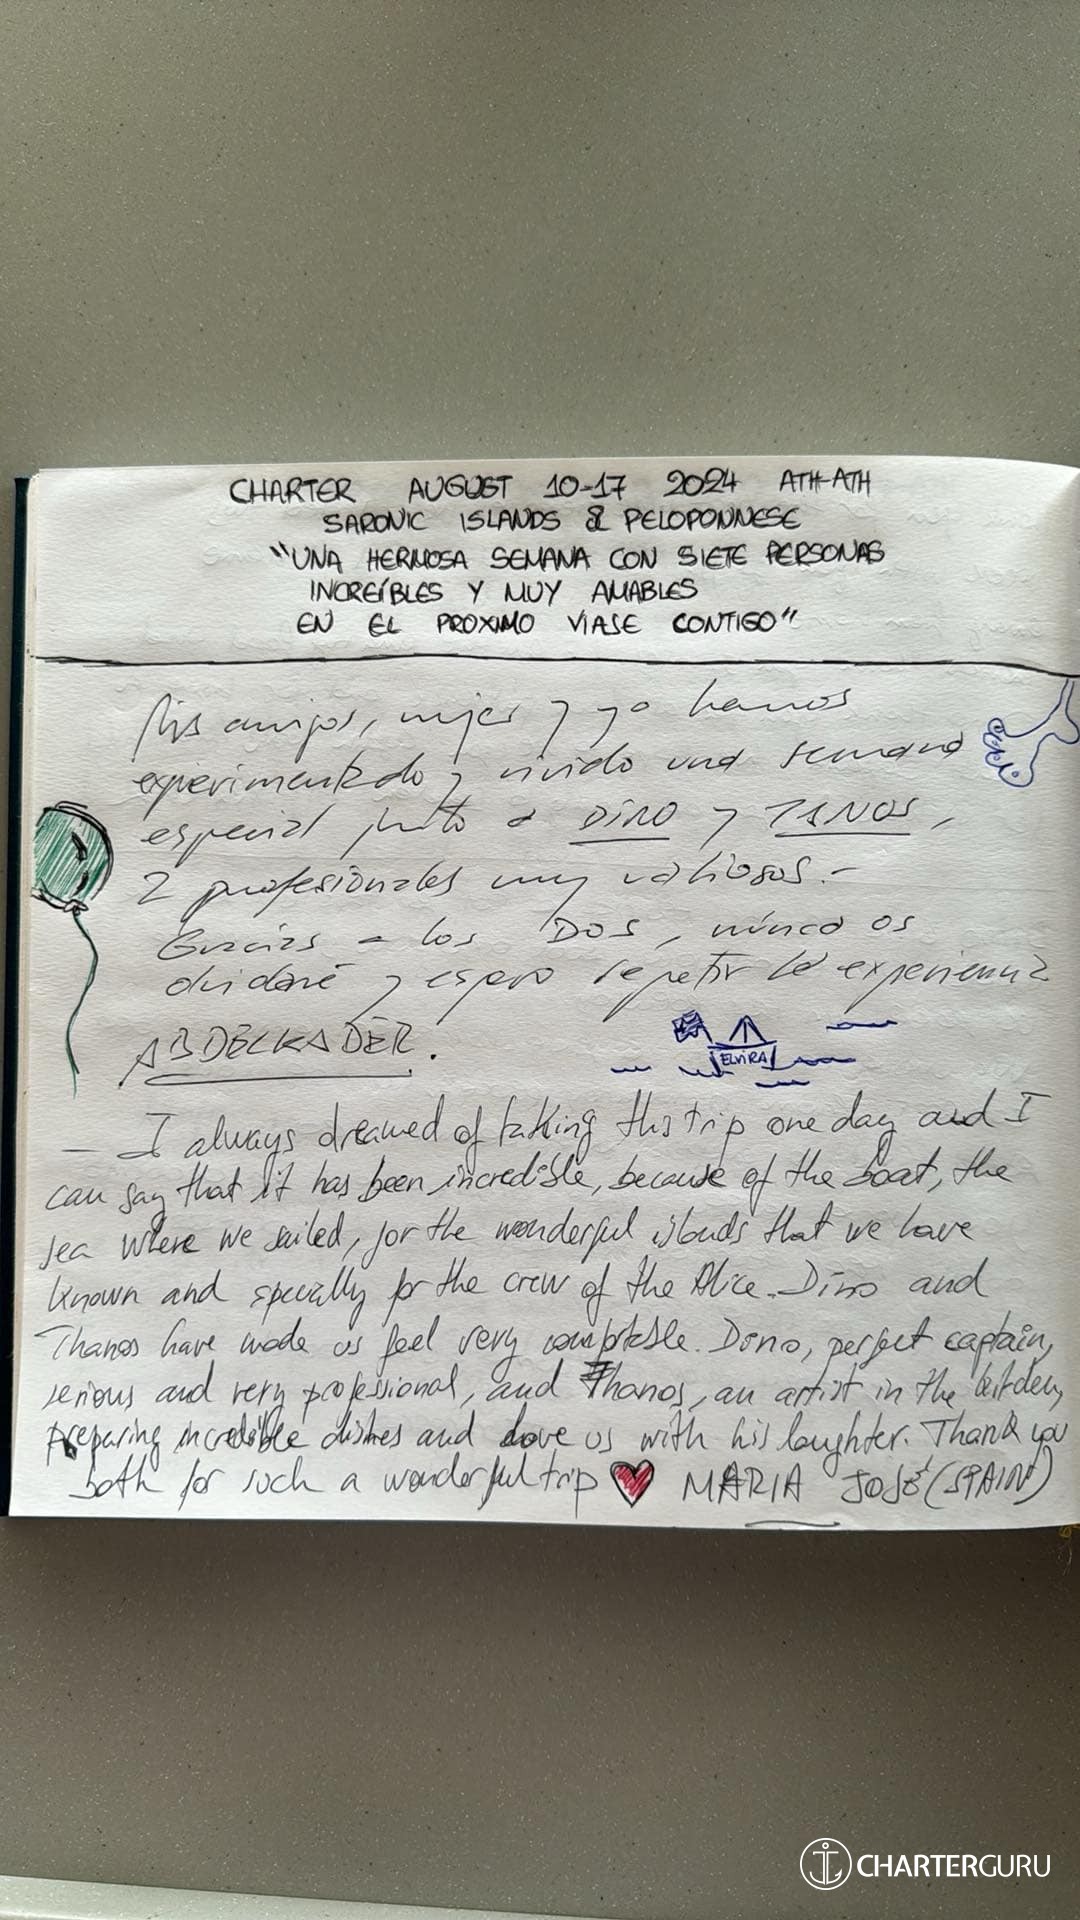 CHARTER AUGUST 10-17 2024 ATH-ATH
SARONIC ISLANDS & PELOPONNESE
"UNA HERMOSA SEMANA CON SIETE PERSONAS
INCREÍBLES Y MUY AMABLES
EN EL PROXIMO VIASE CONTIGO"
Mis amigos, mujer y yo hemos
experimentado y vivido una semana
especial junto a DINO y TANOS,
2 profesionales muy valiosos.-
Gracias a los DOS, núnca os
olvidaré y espero repetir la experiencia
ABDELKADER.
ELVIRA
- I always dreamed of taking this trip one day and I
can say that it has been incredible, because of the boat, the
sea where we sailed, for the wonderful islands that we have
known and specially for the crew of the Alice. Dino and
Thanos have made us feel very comfortable. Dino, perfect captain,
serious and very professional, and Thanos, an artist in the
preparing incredible dishes and love us with his laughter. Thank you
both for such a wonderful trip ❤ MARIA JOSÉ (SPAIN)
CHARTERGURU